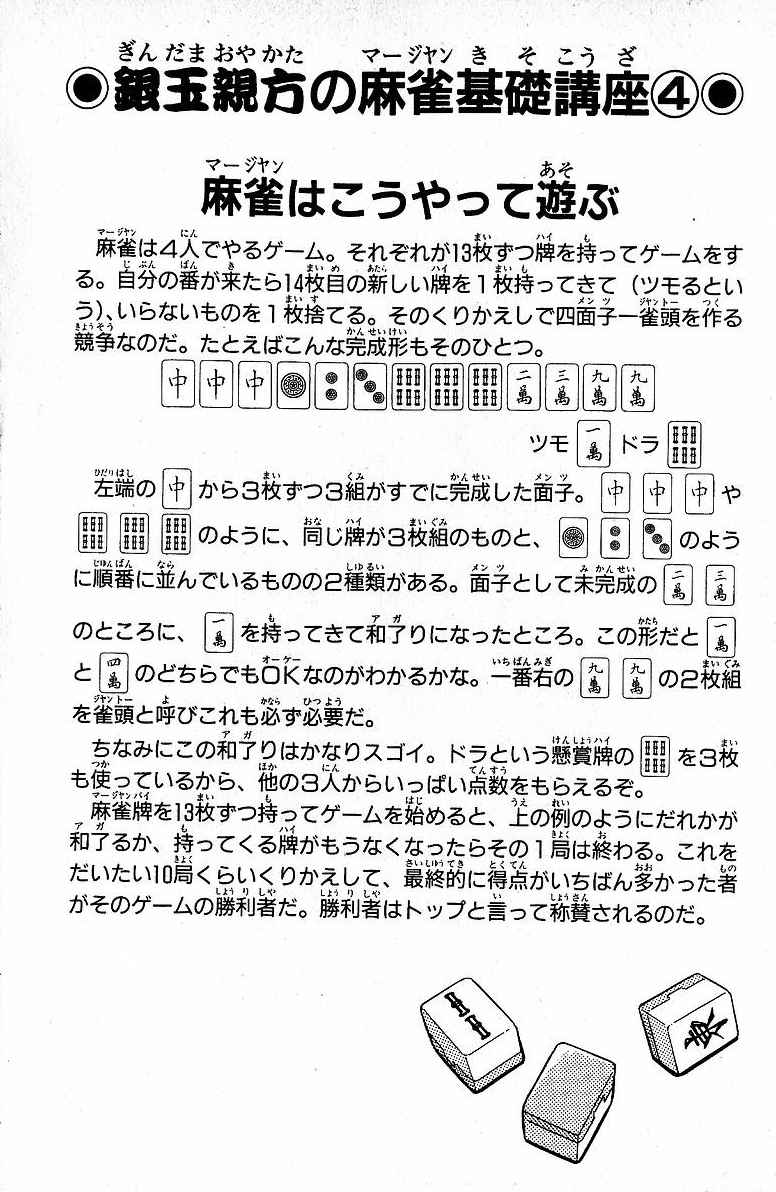 ぎんだまおやかた マージャン きそこうざ
◉銀玉親方の麻雀基礎講座④◉
マージャン あそ
麻雀はこうやって遊ぶ
麻雀は４人でやるゲーム。それぞれが13枚ずつ牌を持ってゲームをす
る。自分の番が来たら14枚目の新しい牌を１枚持ってきて（ツモるとい
う）、いらないものを１枚捨てる。そのくりかえしで四面子一雀頭を作る
競争なのだ。たとえばこんな完成形もそのひとつ。
中 中 中 二萬 三萬 九萬 九萬
ツモ 一萬 ドラ
左端の 中 から３枚ずつ３組がすでに完成した面子。 中 中 中 や
のように、同じ牌が３枚組のものと、 のよう
に順番に並んでいるものの２種類がある。面子として未完成の 二萬 三萬
のところに、 一萬 を持ってきて和了りになったところ。この形だと 一萬
と 四萬 のどちらでもOKなのがわかるかな。一番右の 九萬 九萬 の２枚組
を雀頭と呼びこれも必ず必要だ。
ちなみにこの和了りはかなりスゴイ。ドラという懸賞牌の を３枚
も使っているから、他の３人からいっぱい点数をもらえるぞ。
麻雀牌を13枚ずつ持ってゲームを始めると、上の例のようにだれかが
和了るか、持ってくる牌がもうなくなったらその１局は終わる。これを
だいたい10局くらいくりかえして、最終的に得点がいちばん多かった者
がそのゲームの勝利者だ。勝利者はトップと言って称賛されるのだ。